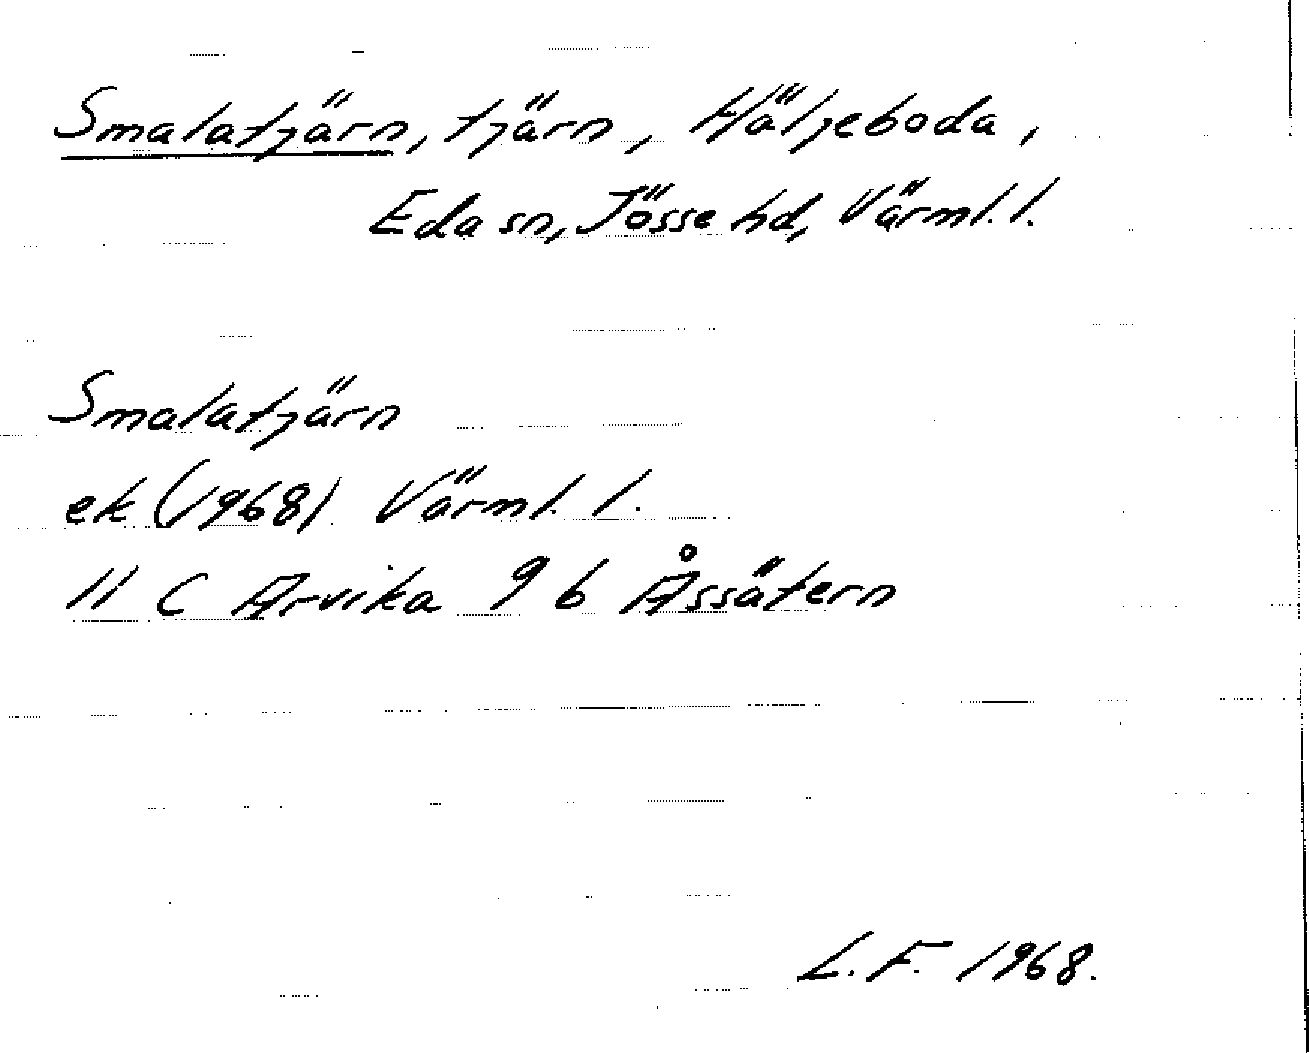 Smalatjärn, tjärn, Häljeboda,
Eda sn, Jösse hd, Värml. l.
Smalatjärn
ek (1968) Värml. l.
11 C Arvika 9 b Åssätern
L. F. 1968.